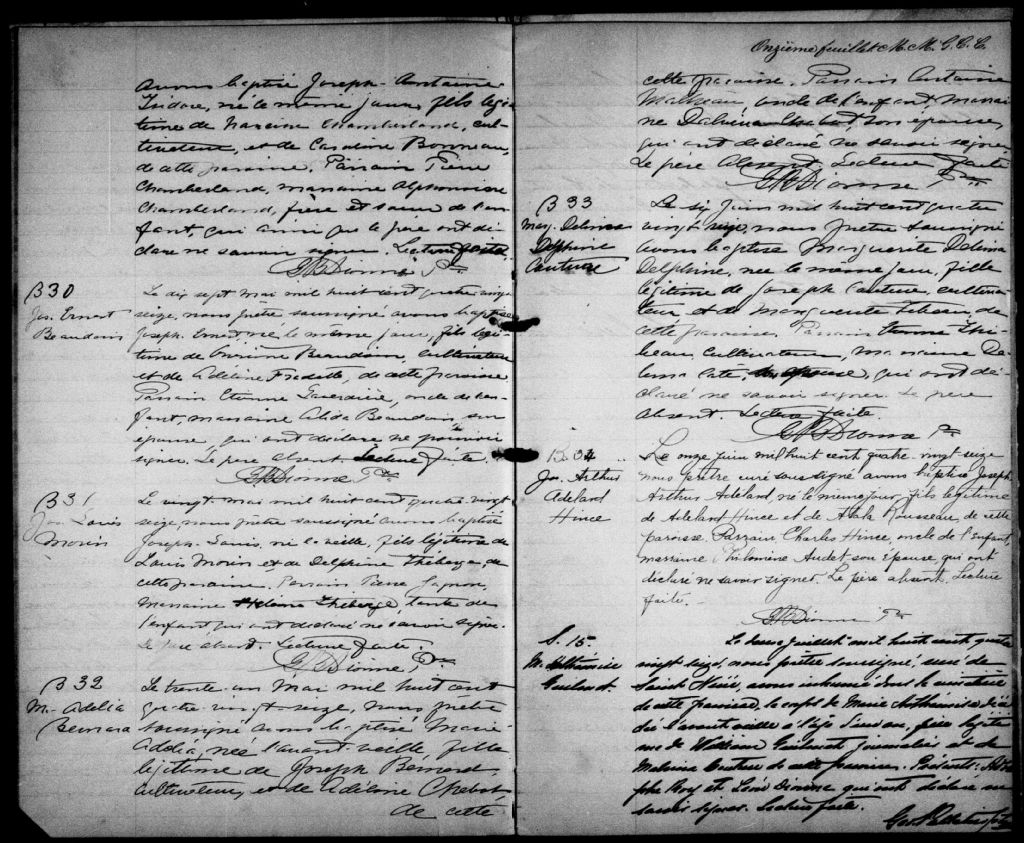 avons baptisé Joseph Antoine
Isidore, né le même jour, fils légi-
time de Narcisse Chamberland, cul-
tivateur, et de Caroline Bonneau,
de cette paroisse. Parrain Pierre
Chamberland, marraine Alphonsine
Chamberland, frère et soeur de l'en-
fant, qui ainsi que le père ont dé-
claré ne savoir signer. Lecture faite.
Dionne Ptre
B 30
Jos. Ernest
Beaudoin
Le dix sept mai mil huit cent quatre vingt
seize, nous prêtre soussigné avons baptisé
Joseph Ernest, né le même jour, fils légi-
time de Beaudoin, cultivateur
et de Adeline Fradette, de cette paroisse
Parrain Etienne oncle de l'en-
fant, marraine Alida Beaudoin, son
épouse, qui ont déclaré ne pouvoir
signer. Le père absent. Lecture faite.
Dionne Ptre
B 31
Jos. Louis
Morin
Le vingt mai mil huit cent quatre vingt
seize, nous prêtre soussigné avons baptisé
Joseph Louis, né la veille, fils légitime de
Louis Morin et de Delphine Théberge, de
cette paroisse. Parrain Pierre Gagnon,
Marraine Théberge, tante de
l'enfant qui ont déclaré ne savoir signer.
Le père absent. Lecture faite.
Dionne Ptre
B 32
M. Adelia
Bernard
Le trente un Mai mil huit cent
quatre vingt seize, nous prêtre
soussigné avons baptisé Marie
Addia, née l'avant veille fille
légitime de Joseph Bernard,
cultivateur, et de Adéline Chabot
de cette
Onzième feuillet M. M. G. C. C.
cette paroisse. Parrain Antoine
oncle de l'enfant Marrai
ne Dalvina Chabot, son épouse,
qui ont déclaré ne savoir signer
Le père absent. Lecture faite
Dionne Ptre
B 33
Marg. Delvina
Delphine
Couture
Le six Juin mil huit cent quatre
vingt seize, nous prêtre soussigné
avons baptisé Marguerite Delvina
Delphine, née le même jour, fille
légitime de Joseph Couture, cultiva-
teur et de Marguerite de
cette paroisse. Parrain Thi-
beau, cultivateur, marraine De-
lima qui ont dé-
claré ne savoir signer. Le père
absent. Lecture faite.
Dionne Ptre
B 34
Jos. Arthur
Adelard
Hince
Le onze juin mil huit cent quatre vingt seize
nous prêtre curé soussigné avons baptisé Joseph
Arthur Adelard, né le même jour, fils légitime
de Adelard Hince et de Atala Rousseau, de cette
paroisse. Parrain Charles Hince, oncle de l'Enfant
marraine Philomène Audet son Epouse, qui ont
déclaré ne savoir signer. Le père absent. Lecture
faite.
Dionne Ptre
S. 15.
M.
Le Juillet mil huit cent quatre
vingt seize, nous prêtre soussigné, curé de
Saint avons inhumé dans le cimetière
de cette paroisse, le corps de Marie décé-
dée l'avant veille à l'âge d'un an, légiti-
me de William journalier et de
Malvina Couture de cette paroisse. Présents:
Roy et Léon Dionne qui ont déclaré ne
savoir signer. Lecture faite.